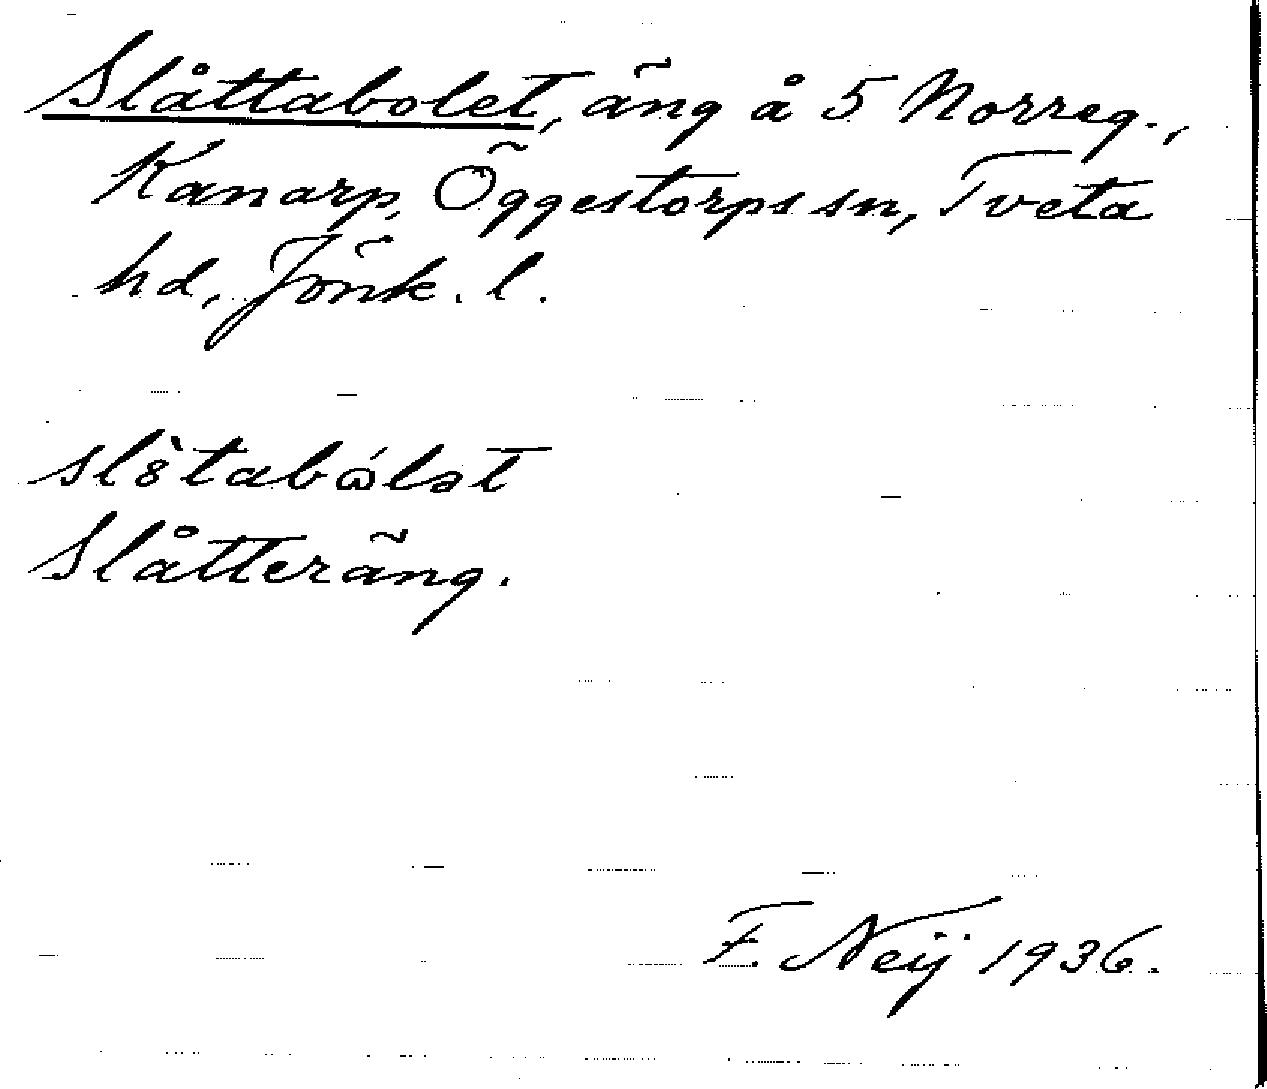 Slåttabolet, äng å 5 Norreg.,
Kanarp, Öggestorps sn, Tveta
hd, Jönk. l.
Slåtteräng.
F. Neij 1936.